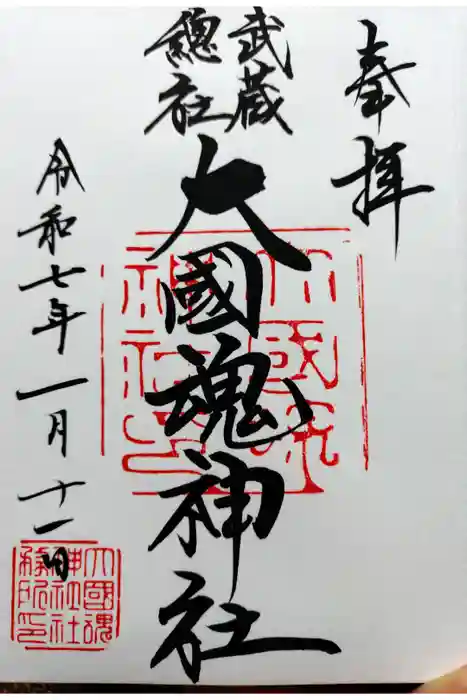 奉拝
武蔵
總社
大國魂神社
令和七年一月十一日
大國魂
神社印
大國魂
神社社
務所印